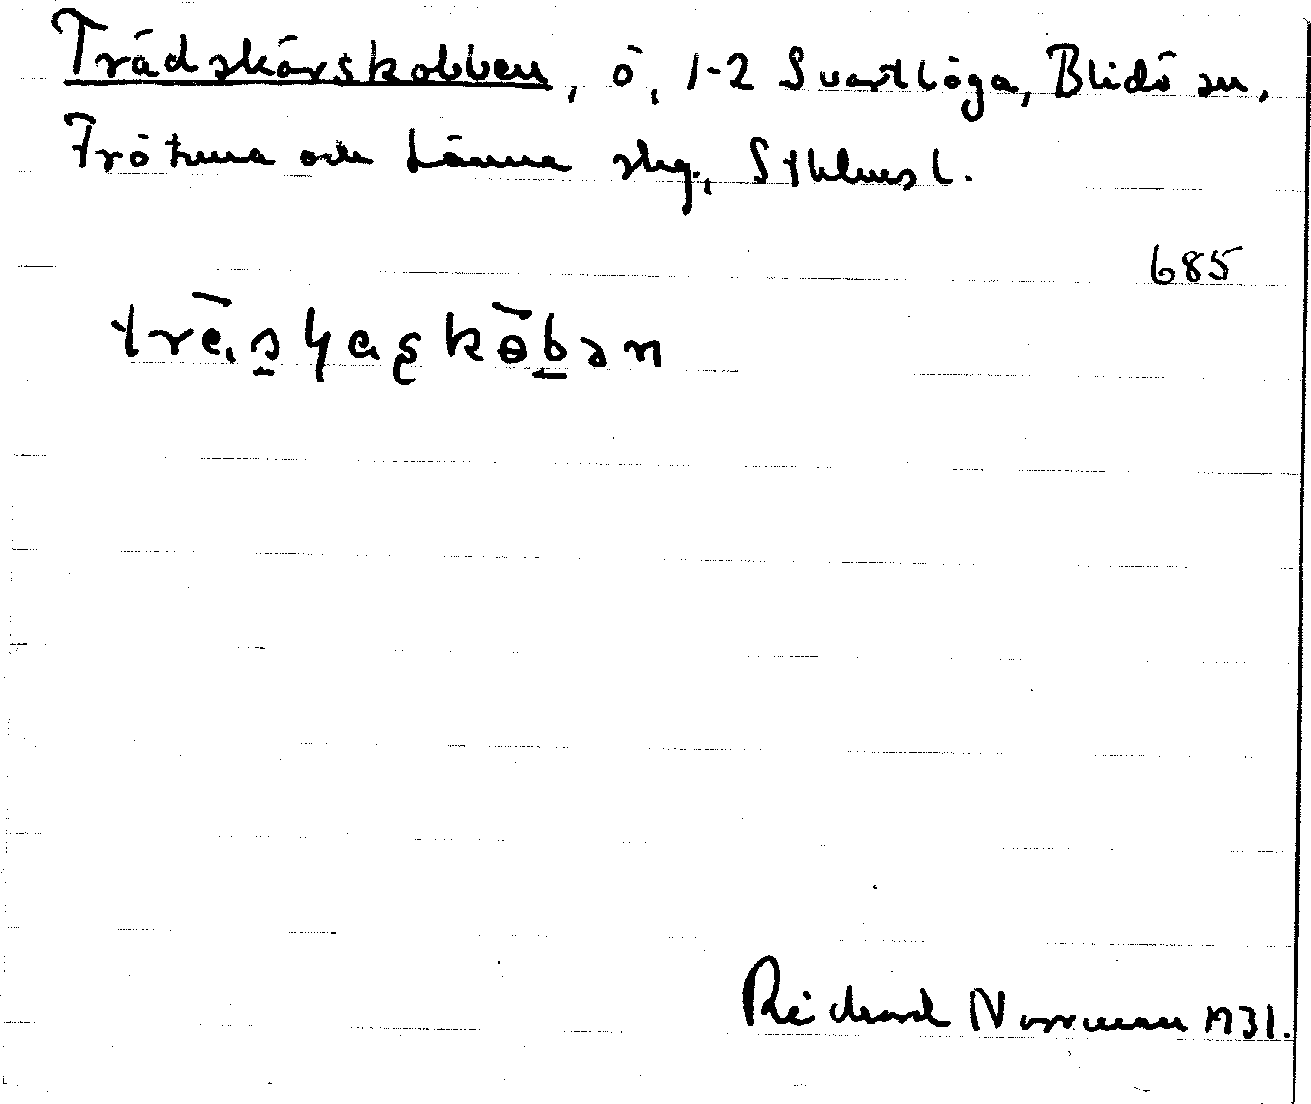 Trädskärskobben, ö, 1-2 Svartlöga, Blidö sn,
Frötuna och Länna skg., Sthlms l.
685
Richard Norrman 1931.